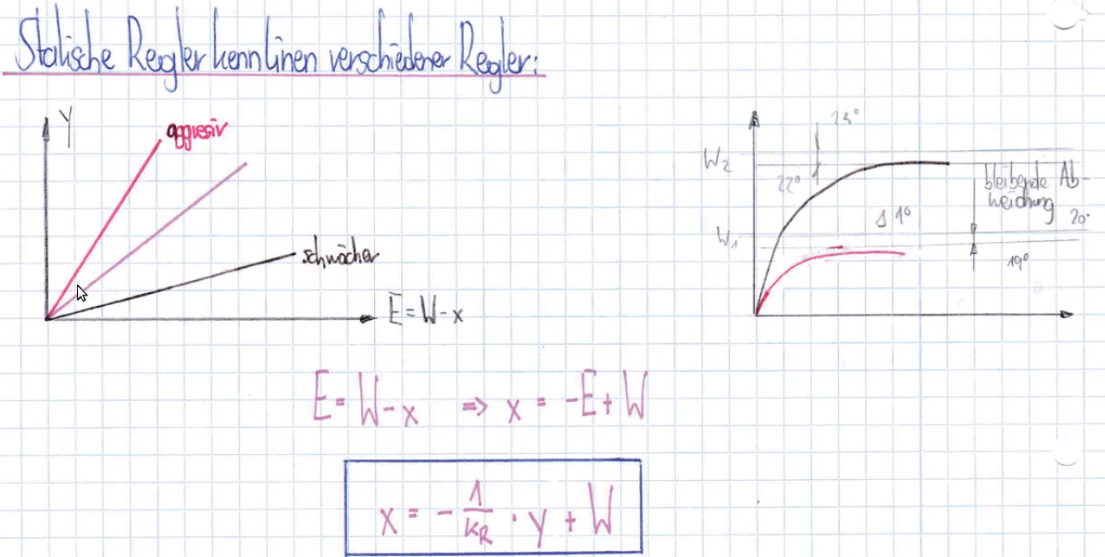 Statische Reglerkennlinen verschiedener Regler:
Y
aggresiv
schwächer
E = W - x
W₂
W₁
23°
22°
Δ 1°
bleibende Ab-
weichung
20°
19°
E = W - x ⇒ x = -E + W
x = - 1/KR · y + W